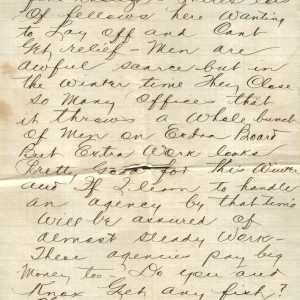 of fellows here Wanting
to Lay Off and Cant
Get relief - Men are
awful scarce but in
the Winter time They Close
So Many Offices that
it throws a Whole bunch
Of Men on Extra Board
But Extra Work looks
Pretty good for this Winter
And If I learn to handle
an agency by that time
Will be assured of
almost steady Work -
These agencies pay big
Money too - Do you and
Knox Get any fish?